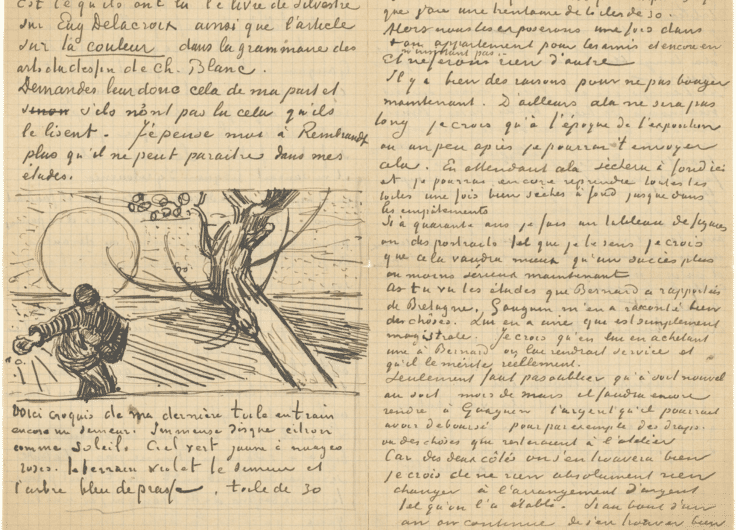 est ce qu'ils ont lu le livre de Silvestre
sur Eug Delacroix ainsi que l'article
sur la couleur dans la grammaire des
arts du dessin de Ch. Blanc.
Demandes leur donc cela de ma part et
sinon s'ils n'ont pas lu cela qu'ils
le lisent. J'epense moi à Rembrandt
plus qu'il ne peut paraitre dans mes
études.
Voici croquis de ma dernière toile en train
encore un semeur. Immense disque citron
comme soleil. Ciel vert jaune à nuages
roses. le terrain violet le semeur et
l'arbre bleu de prusse. toile de 30
que j'aie une trentaine de toiles de 30.
Alors nous les exposerons une fois dans
ton appartement pour les amis et encore en
et ne ferons rien d'autre
Il y a bien des raisons pour ne pas bouger
maintenant. D'ailleurs cela ne sera pas
long je crois qu'à l'époque de l'exposition
ou un peu après je pourrai t'envoyer
cela. En attendant cela séchera à fond ici
et je pourrai encore reprendre toutes les
toiles une fois bien sèches à fond jusque dans
les empâtements
Si à quarante ans je fais un tableau de figures
ou des portraits tel que je le sens je crois
que cela vaudra mieux qu'un succès plus
ou moins sérieux maintenant
as tu vu les études que Bernard a rapportées
de Bretagne, Gauguin m'en a raconté bien
des choses. Lui en a une que est simplement
magistrale. Je crois qu'en lui en achetant
une à Bernard on lui rendrait service et
qu'il le mérite réellement.
Seulement faut pas oublier qu'à soit nouvel
an soit mois de mars il faudra encore
rendre à Gauguin l'argent qu'il pourrait
avoir déboursé pour par exemple des draps.
ou des choses qui resteraient à l'atelier
Car des deux côtés on s'en trouvera bien
je crois de ne rien absolument rien
changer à l'arrangement d'argent
tel qu'on l'a établi. Si au bout d'un
an on continue de s'en trouver bien